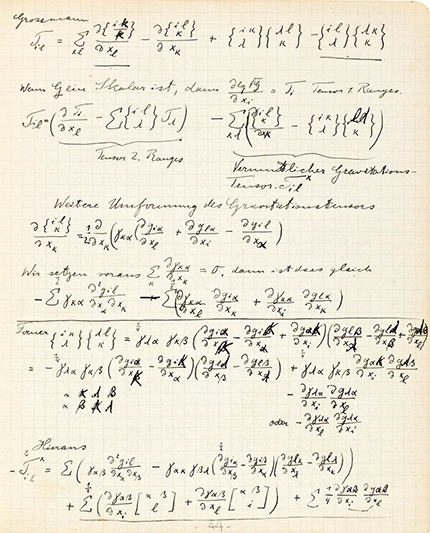 Grossmann
T_il = Σ_κl ∂{i κ / κ}/∂x_l − ∂{i l / κ}/∂x_κ + {i κ / λ}{λ l / κ} − {i l / λ}{λ κ / κ}
Wenn G ein Skalar ist, dann ∂lg√G/∂x_i = T_i Tensor 1. Ranges.
T_il = (∂T_i/∂x_l − Σ{i l / λ}T_λ) − Σ_κλ(∂{i l / κ}/∂x_κ − {i κ / λ}{l λ / κ})
Tensor 2. Ranges
Vermutlicher Gravitations-
tensor T_il^x
Weitere Umformung des Gravitationstensors
∂{i l / κ}/∂x_κ = ½ ∂/∂x_κ (γ_κα(∂g_iα/∂x_l + ∂g_lα/∂x_i − ∂g_il/∂x_α))
Wir setzen voraus Σ_κ ∂γ_κα/∂x_κ = 0, dann ist dies gleich
− Σ γ_κα ∂²g_il/∂x_α∂x_κ − Σ(∂γ_κα/∂x_l ∂g_iα/∂x_κ + ∂γ_κα/∂x_i ∂g_lα/∂x_κ)
Ferner {i κ / λ}{λ l / κ} = ¼ γ_λα γ_κβ (∂g_iα/∂x_κ − ∂g_iκ/∂x_α + ∂g_ακ/∂x_i)(∂g_lβ/∂x_λ − ∂g_lλ/∂x_β + ∂g_λβ/∂x_l)
= − ¼ γ_λα γ_κβ (∂g_iα/∂x_κ − ∂g_iκ/∂x_α)(∂g_lλ/∂x_β − ∂g_lβ/∂x_λ) + ¼ γ_λα γ_κβ ∂g_ακ/∂x_i ∂g_λβ/∂x_l
α κ λ β
α β κ λ
− ∂γ_λα/∂x_i ∂g_λα/∂x_l
oder − ∂γ_λα/∂x_l ∂g_λα/∂x_i
Hieraus
− T_il^x = Σ(γ_αβ ∂²g_il/∂x_α∂x_β − γ_ακ γ_βλ (∂g_iα/∂x_β − ∂g_iβ/∂x_α)(∂g_lκ/∂x_λ − ∂g_lλ/∂x_κ))
+ Σ(∂γ_αβ/∂x_i [α β / l] + ∂γ_αβ/∂x_l [α β / i]) + Σ ¼ ∂γ_αβ/∂x_i ∂g_αβ/∂x_l
- 44 -